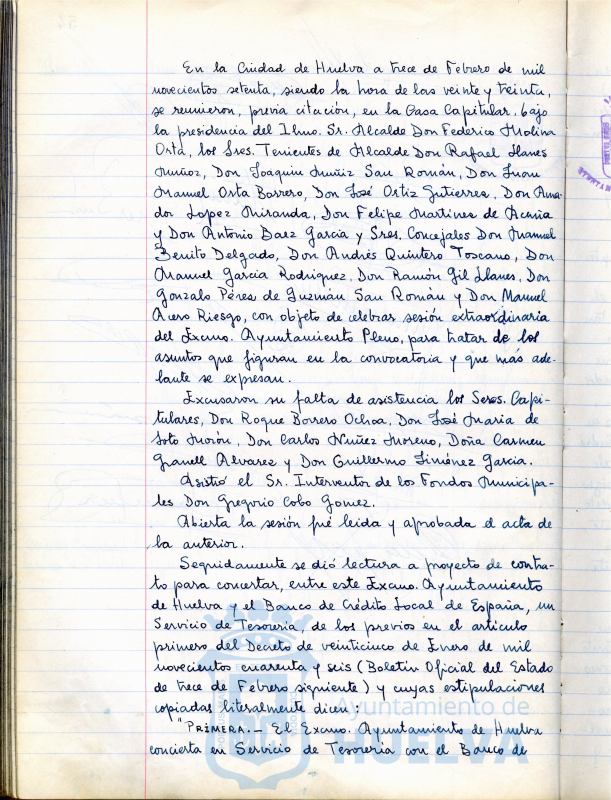 En la Ciudad de Huelva a trece de Febrero de mil
novecientos setenta, siendo la hora de las veinte y treinta,
se reunieron, previa citación, en la Casa Capitular, bajo
la presidencia del Ilmo. Sr. Alcalde Don Federico Molina
Orta, los Sres. Tenientes de Alcalde Don Rafael Llanes
Muñoz, Don Joaquín Muñiz San Román, Don Juan
Manuel Orta Borrero, Don José Ortiz Gutierrez, Don Ama-
dor Lopez Miranda, Don Felipe Martinez de Acuña
y Don Antonio Baez Garcia y Sres. Concejales Don Manuel
Benito Delgado, Don Andrés Quintero Toscano, Don
Manuel Garcia Rodriguez, Don Ramón Gil Llanes, Don
Gonzalo Pérez de Guzmán San Román y Don Manuel
Riesgo, con objeto de celebrar sesión extraordinaria
del Excmo. Ayuntamiento Pleno, para tratar de los
asuntos que figuran en la convocatoria y que más ade-
lante se expresan.
Excusaron su falta de asistencia los Sres. Capi-
tulares, Don Roque Borrero Ochoa, Don José Maria de
Soto Morón, Don Carlos Nuñez Moreno, Doña Carmen
Granell Alvarez y Don Guillermo Jiménez Garcia.
Asistió el Sr. Interventor de los Fondos Municipa-
les Don Gregorio Cobo Gomez.
Abierta la sesión fué leida y aprobada el acta de
la anterior.
Seguidamente se dió lectura a proyecto de contra-
to para concertar, entre este Excmo. Ayuntamiento
de Huelva y el Banco de Crédito Local de España, un
Servicio de Tesorería, de los previos en el artículo
primero del Decreto de veinticinco de Enero de mil
novecientos cuarenta y seis (Boletin Oficial del Estado
de trece de Febrero siguiente) y cuyas estipulaciones
copiadas literalmente dicen:
"PRIMERA.- El Excmo. Ayuntamiento de Huelva
concierta en Servicio de Tesorería con el Banco de
Ayuntamiento de
HUELVA